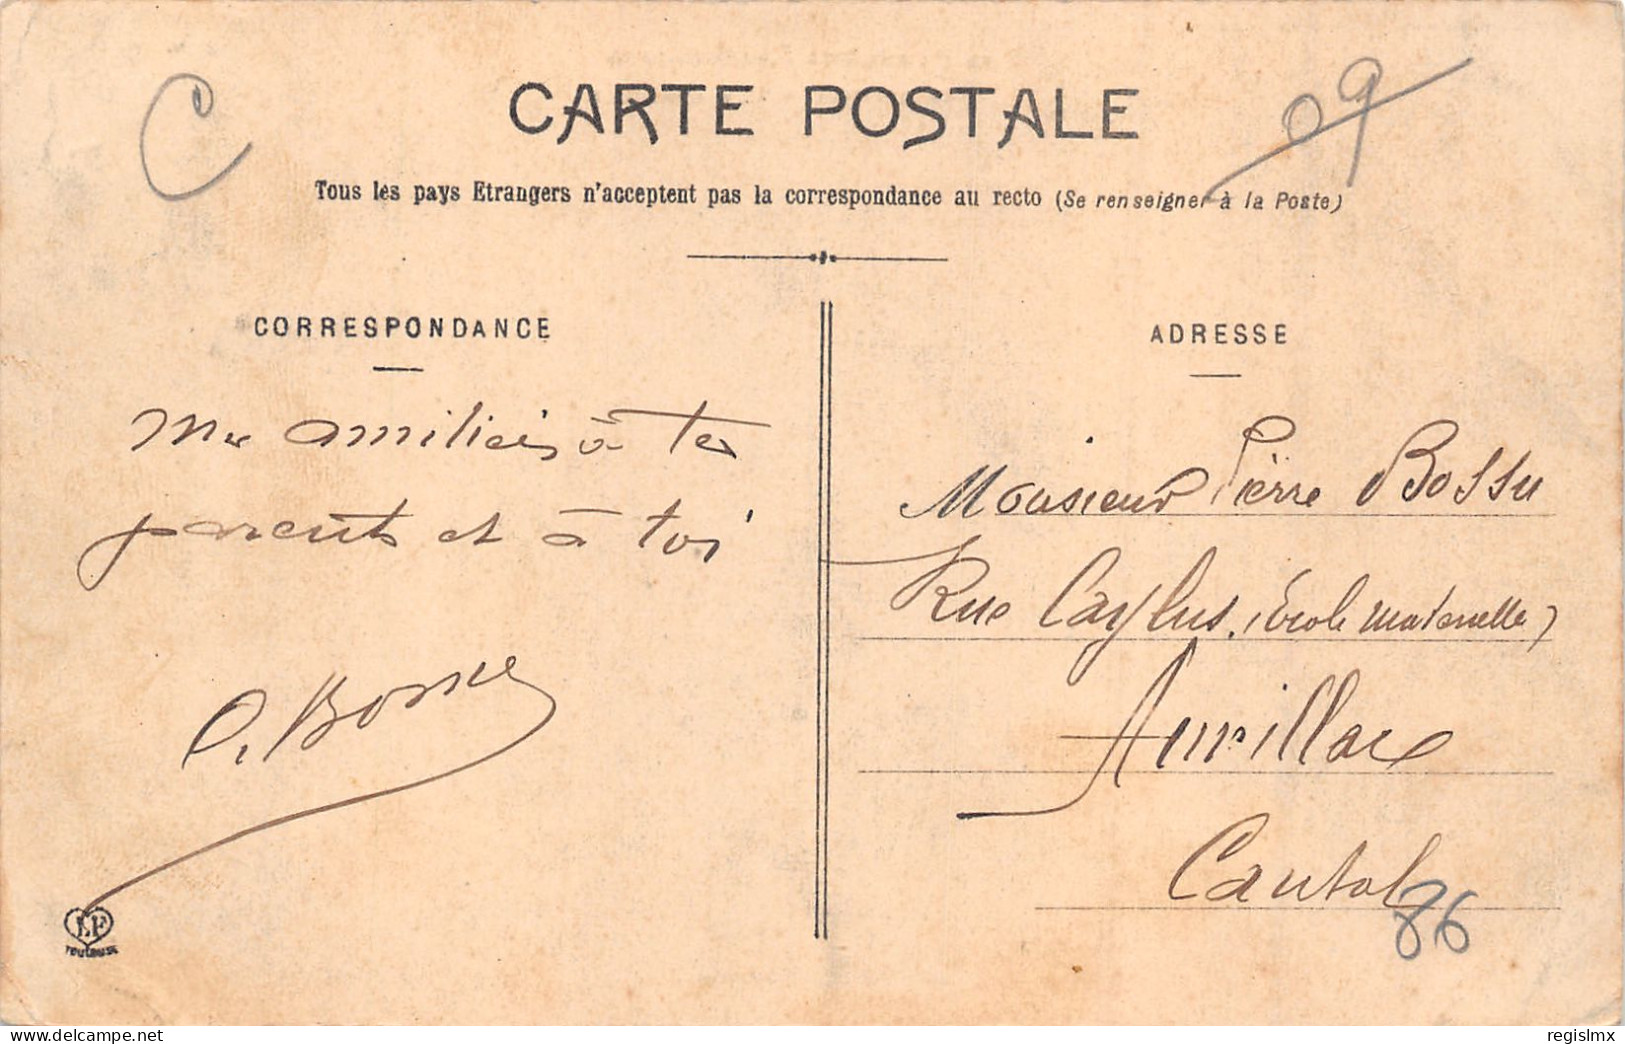 C
09
CARTE POSTALE
Tous les pays Etrangers n'acceptent pas la correspondance au recto (Se renseigner à la Poste)
CORRESPONDANCE
Mes amitiés à tes
parents et à toi
ADRESSE
Monsieur Pierre Bossu
Rue Caylus. (École maternelle)
Aurillac
Cantal
86
LF
TOULOUSE
delcampe.net
regislmx